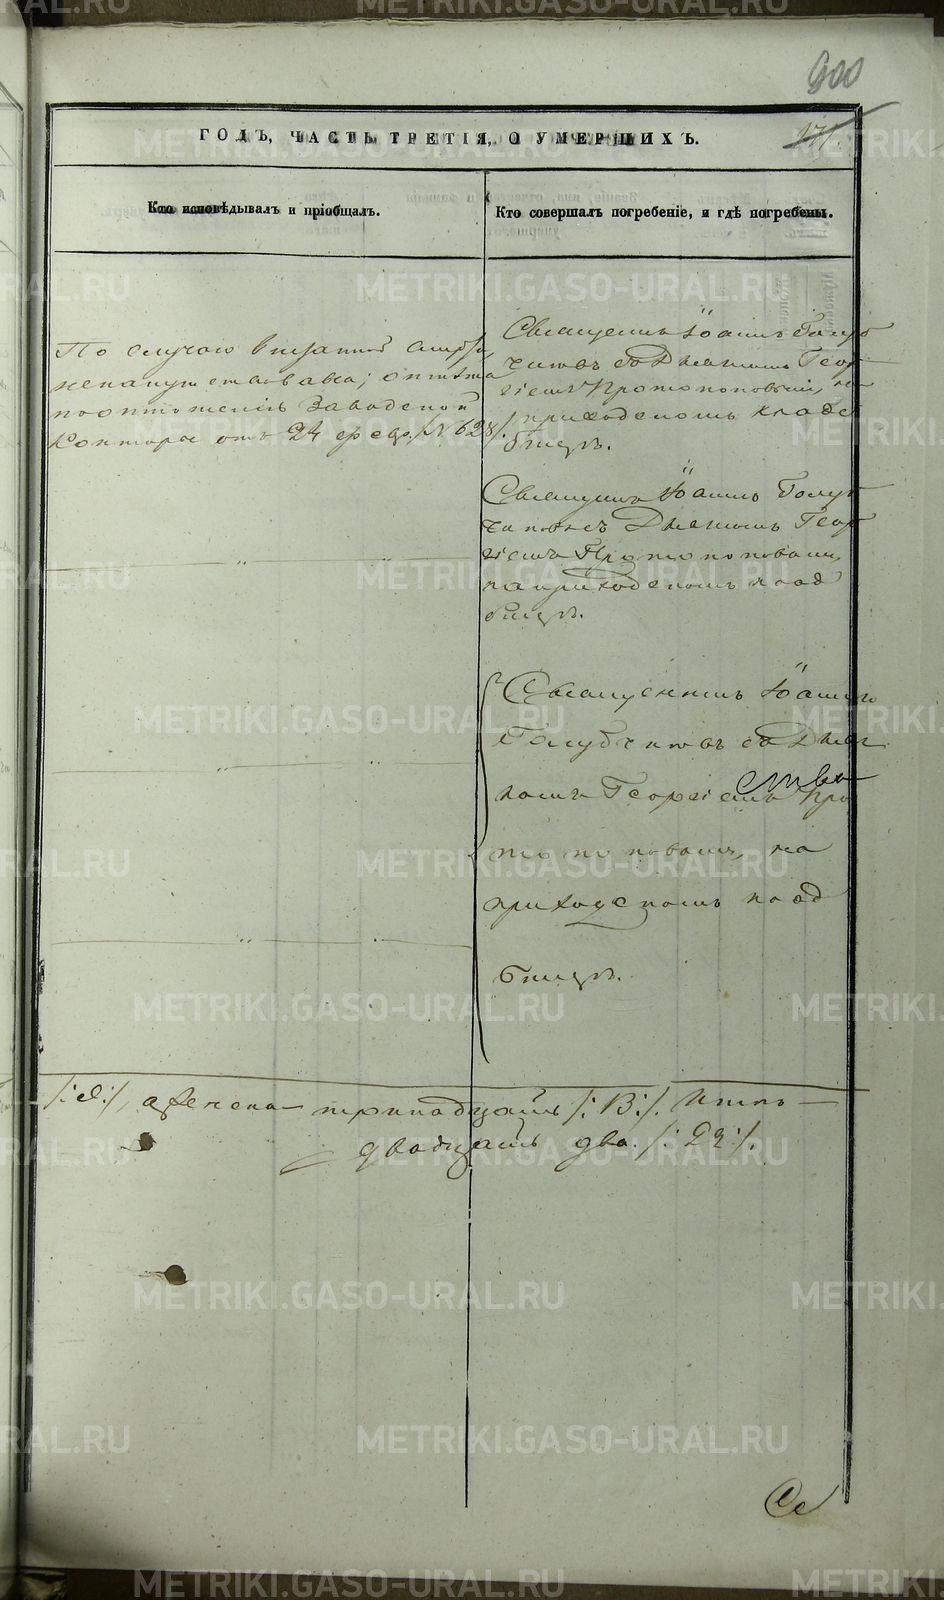 900
171.
ГОДЪ, ЧАСТЬ ТРЕТІЯ, О УМЕРШИХЪ.
Кто исповѣдывалъ и пріобщалъ.
Кто совершалъ погребеніе, и гдѣ погребены.
По случаю внезапной смерти,
ненапутствована; отпѣта
по отношенію Заводской
Конторы отъ 24 февр. № 628.
Священникъ Іоаннъ Голуб
чиковъ съ Діакономъ Геор
гіемъ Протопоповымъ, на
приходскомъ клад
бищѣ.
Священникъ Іоаннъ Голуб
чиковъ съ Діакономъ Геор
гіемъ Протопоповымъ,
на приходскомъ клад
бищѣ.
Священникъ Іоаннъ
Голубчиковъ съ Діако
номъ Георгіемъ Про
топоповымъ, на
приходскомъ клад
бищѣ.
женска тринадцать /:13:/. Итого
двадцать два. /:22:/.
METRIKI.GASO-URAL.RU